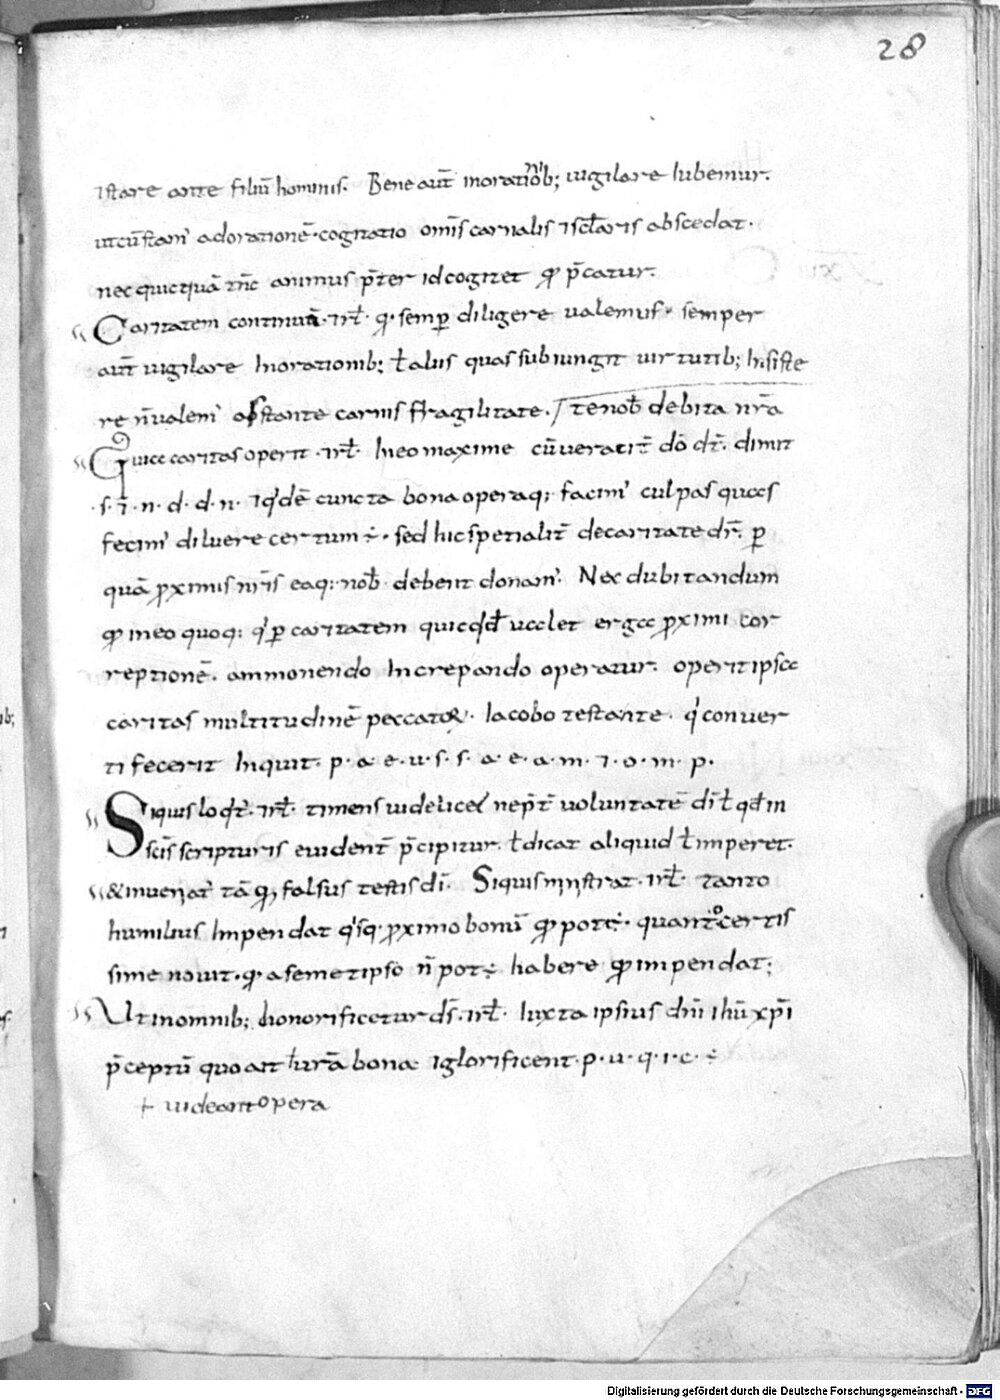 28
istare ante filiū hominis. Bene aūt inorationib; uigilare iubemur.
utcū stam' adorationē. cogitatio om̄is carnalis ⁊ sc̄laris abscedat.
nec quicquā tn̄c animus p̄ter id cogitet qđ p̄catur.
Caritatem continuā. irł. q. semp̲ diligere ualemus. semper
aūt uigilare Inorationib; ł alus quas subiungit uirtutib; Insiste
re n̄ ualem' obstante carnis fragilitate. / tenob̄ debita nr̄a
Quia caritas operit. irł. Ineo maxime cū ueracit̄ dō dr̄. dimit
.s. ī. n. d. d. n. ⁊ qđē cuncta bona opera q; facim' culpas quas
fecim' diluere certum ÷. sed hic spetialit̄ decaritate dr̄. p̲
quā p̲ximis nr̄is ea q; nob̄ debent donam'. Nec dubitandum
qđ ineo quoq; q' p̲ caritatem quicqđ ualet erga p̲ximi cor
reptionē. ammonendo Increpando operatur. operit ipsa
caritas multitudinē peccatoꝝ. Iacobo testante. q' conuer
ti fecerit Inquit. p. a. e. u. s. s. a. e. a. m. ⁊. o. m. p.
Siquis loqt̄. irł. timens uidelicet nep̄t̄ uoluntatē dī ł qđ in
scīs scripturis euident̄ p̄cipitur. ł dicat aliquid ł imperet.
& inueniat' tā q, falsus testis dī. Siquis ministrat. irł. tanto
humilius Impendat q'sq. p̲ximo bonū qđ pot÷. quanto certis
sime nouit. q. a semetipso n̄ pot÷ habere qđ impendat;
Ut inomnib; honorificetur ds̄. irł. Iuxta ipsius dn̄i ihū xp̄i
p̄ceptū quo ait ur̄a bona ⁊ glorificent. p. u. q. i. c. ÷
+ uideant opera
Digitalisierung gefördert durch die Deutsche Forschungsgemeinschaft - DFG